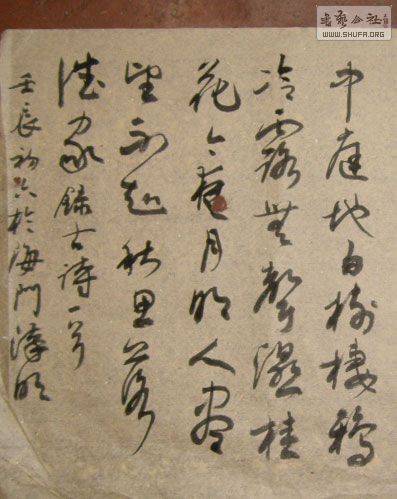 中庭地白树棲鸦
冷露無聲濕桂
花今夜月明人尽
望不知秋思落
谁家錄古诗一首
壬辰初六於海門
書藝公社
WWW.SHUFA.ORG